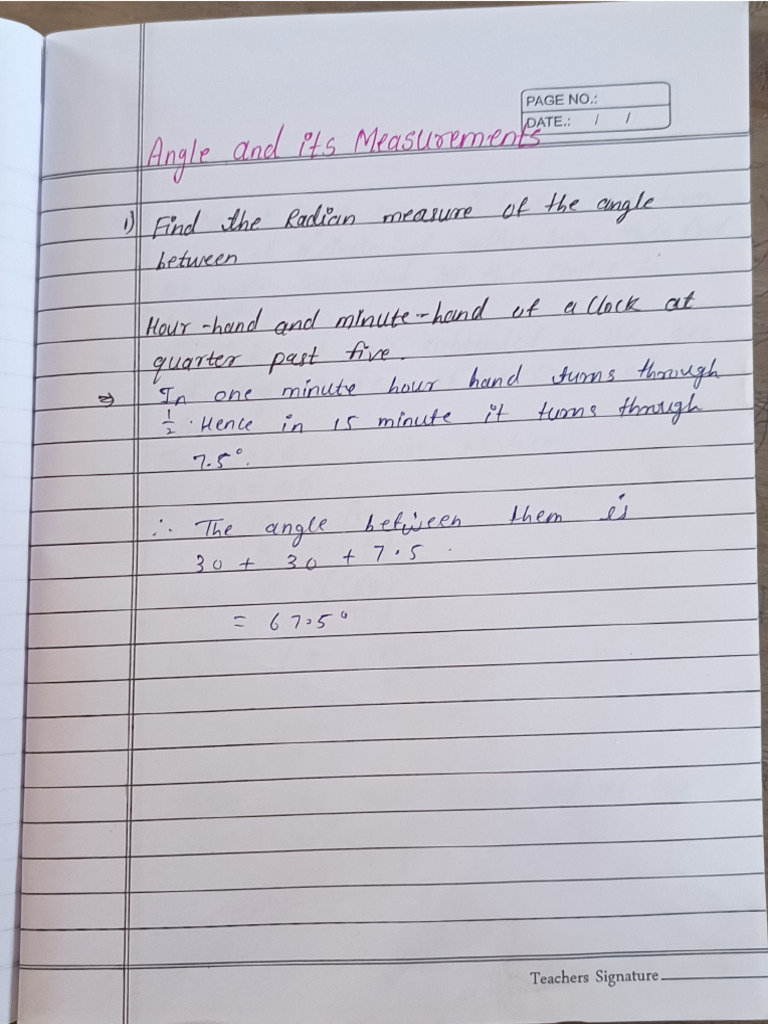 PAGE NO.:
DATE.: / /
Angle and its Measurements
1) Find the Radian measure of the angle
between
Hour-hand and minute-hand of a Clock at
quarter past five.
⇒ In one minute hour hand turns through
1/2. Hence in 15 minute it turns through
7.5°.
∴ The angle between them is
30 + 30 + 7.5.
= 67.5°
Teachers Signature